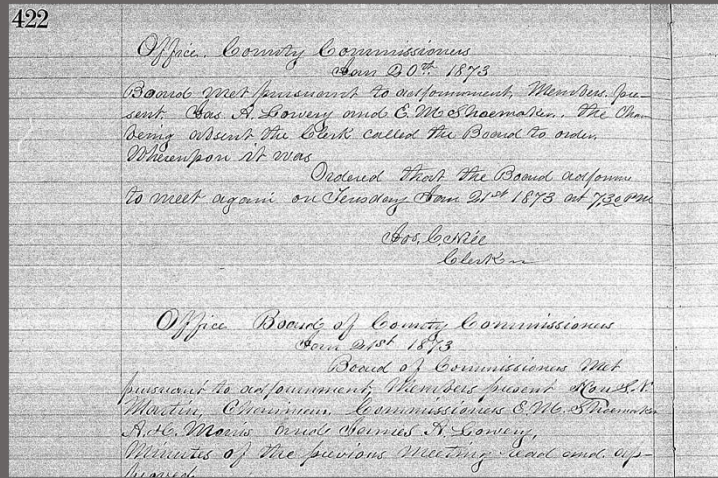 422
Office County Commissioners
Jan 20th 1873
Board met pursuant to adjournment, Members pre-
sent, Jas. A. Lowery and E. M. Shoemaker. The Chai
being absent the Clerk called the Board to order.
Whereupon it was
Ordered that the Board adjourn
to meet again on Tuesday Jan 21st 1873 at 7,30 PM
Jos. C.
Clerk
Office Board of County Commissioners
Jan 21st 1873
Board of Commissioners Met
pursuant to adjournment, Members present Hon
Martin, Chairman, Commissioners E. M. Shoemaker
A. H. Morris and James A. Lowery,
Minutes of the previous Meeting read and ap-
proved